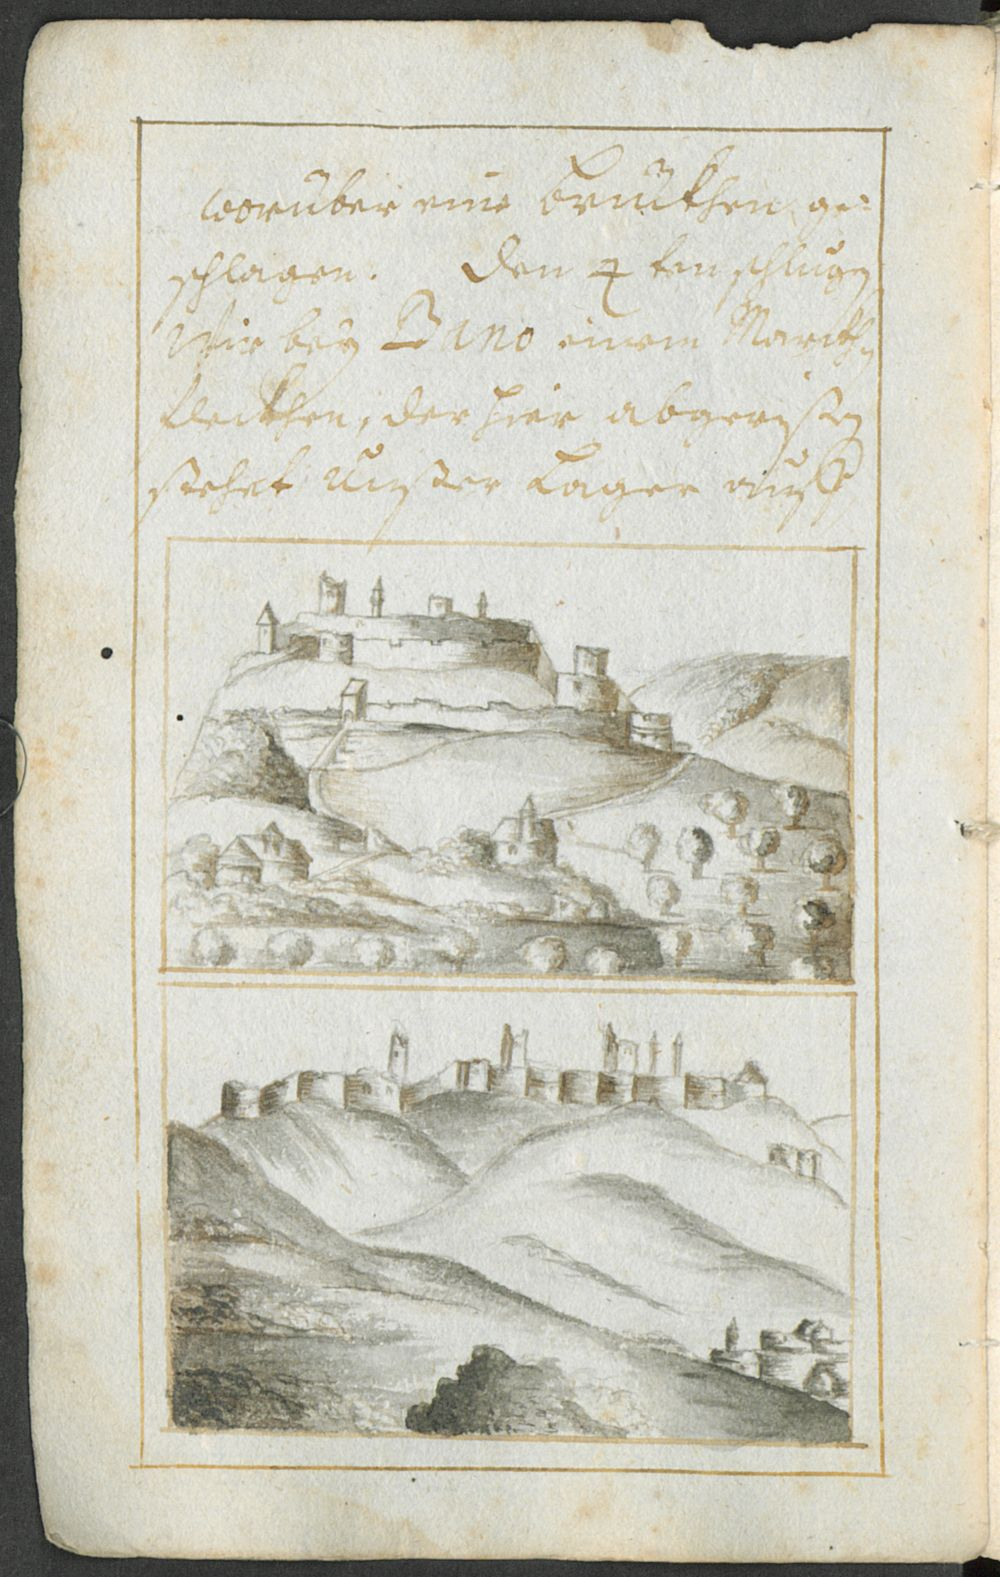 worüber eine brükhen ge=
schlagen. Den 4 ten schlugen
Wir bey Zuno einem Markth
flekhen, der hier abgerißen
stehet Unßer Lager auff